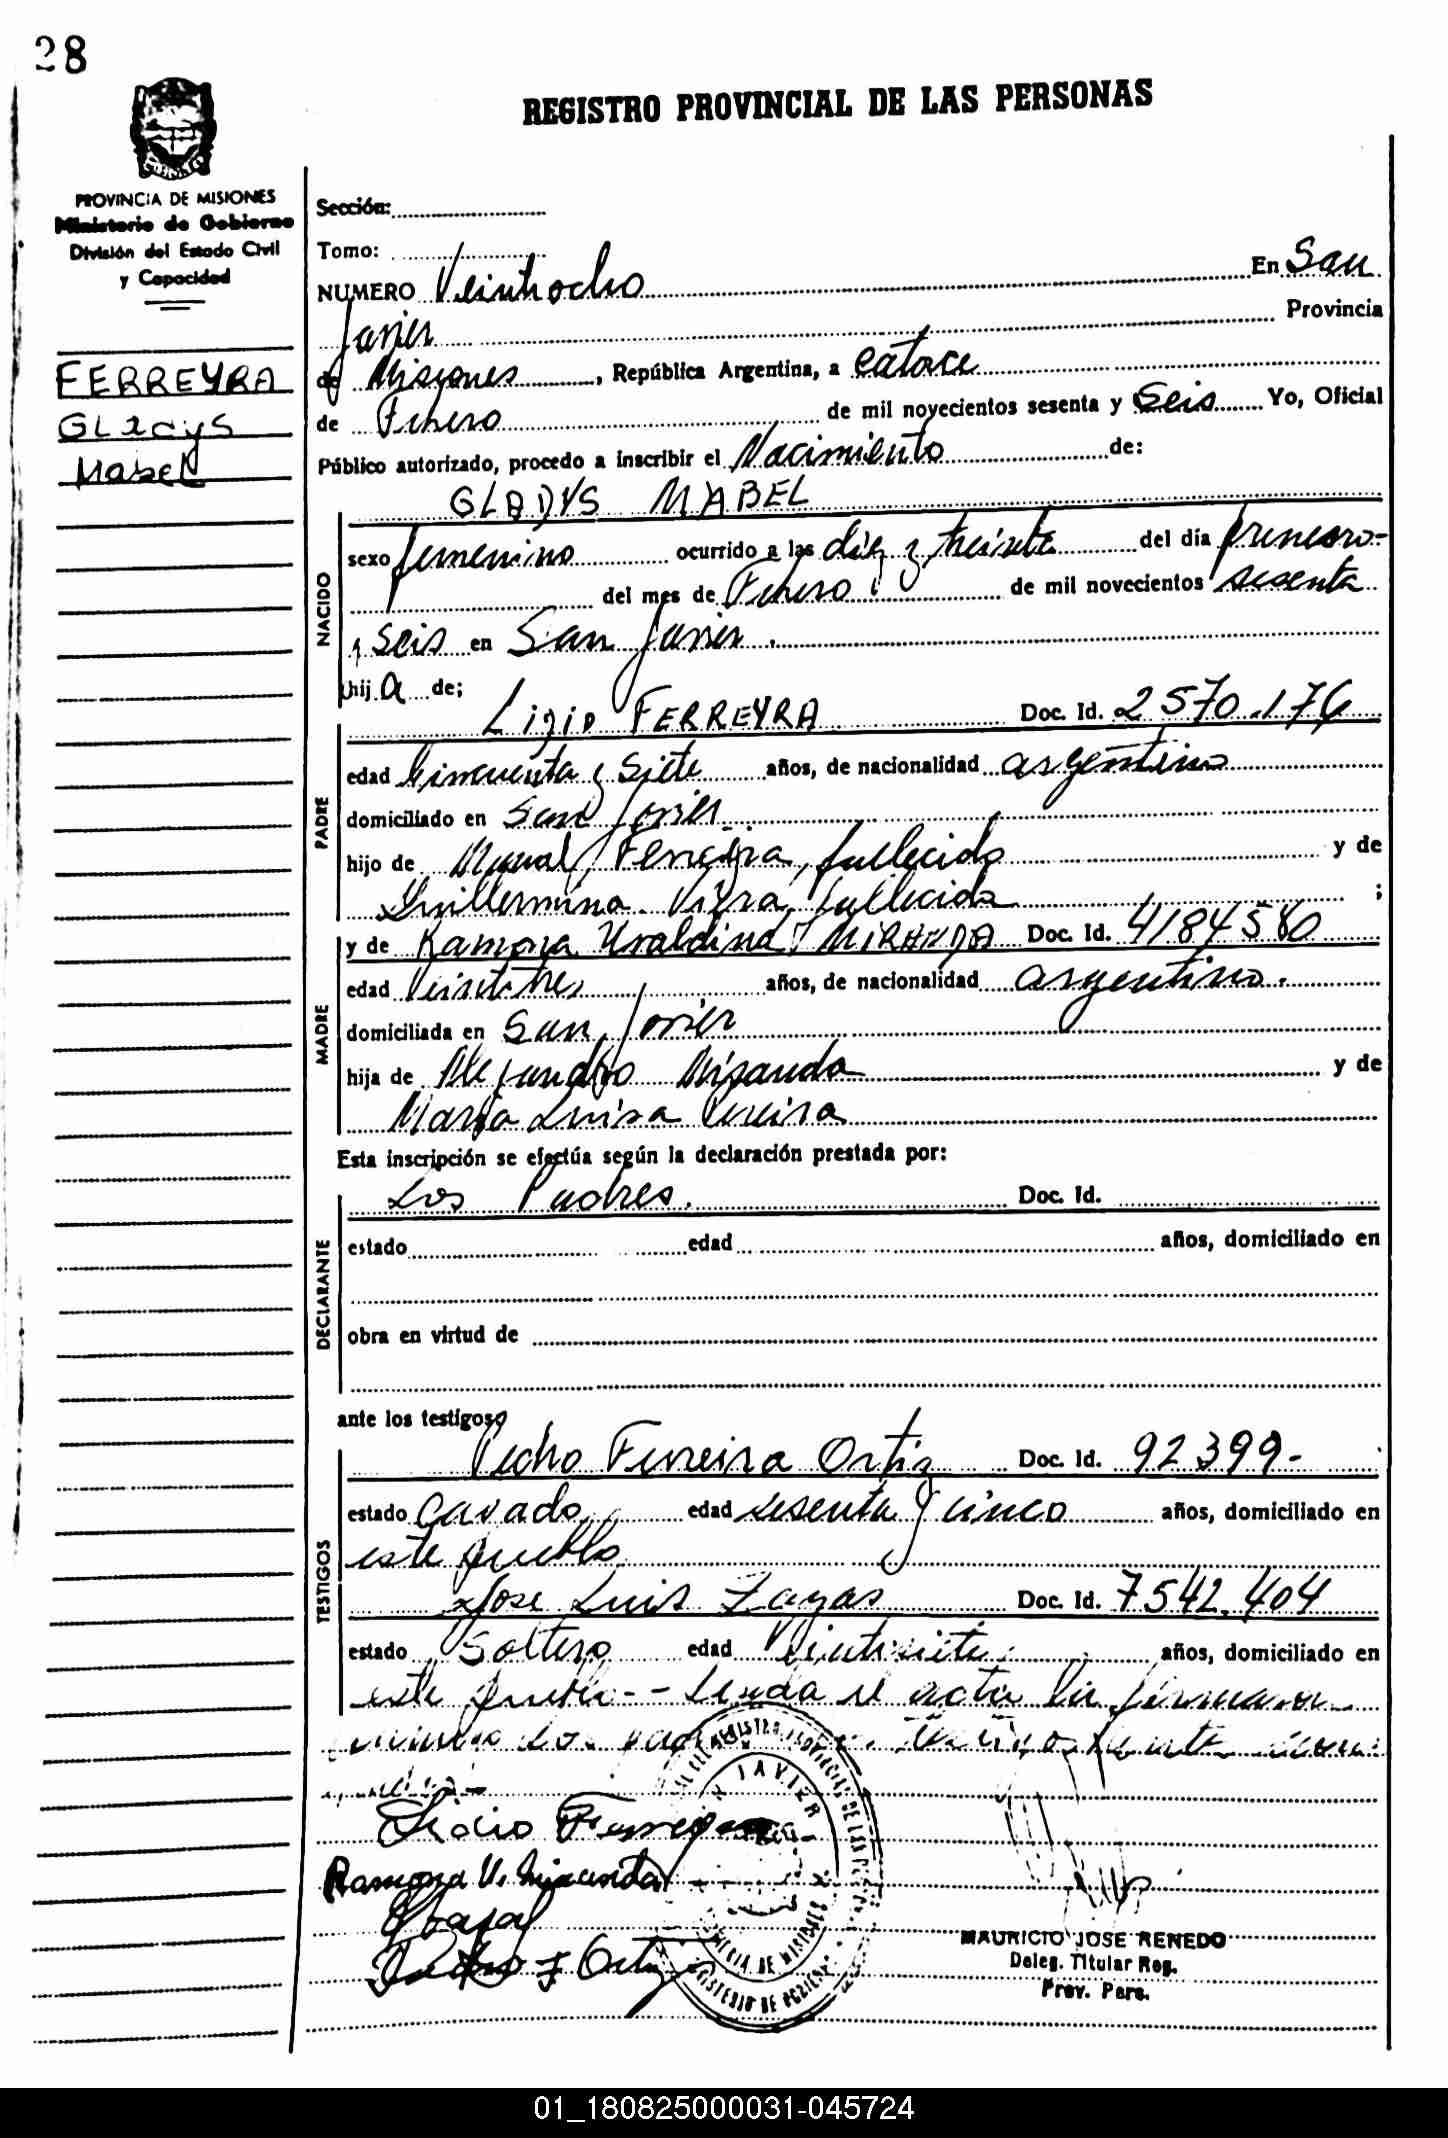 28
REGISTRO PROVINCIAL DE LAS PERSONAS
PROVINCIA DE MISIONES
Ministerio de Gobierno
División del Estado Civil
y Capacidad
FERREYRA
GLadys
Mabel
Sección:
Tomo:
NUMERO Veintiocho En San
Javier Provincia
de Misiones, República Argentina, a catorce
de Febrero de mil novecientos sesenta y Seis Yo, Oficial
Público autorizado, procedo a inscribir el Nacimiento de:
GLADYS MABEL
NACIDO
sexo femenino ocurrido a las diez y treinta del día primero-
del mes de Febrero de mil novecientos sesenta
y Seis en San Javier.
hija de;
PADRE
FERREYRA Doc. Id. 2570.176
edad Cincuenta y Siete años, de nacionalidad argentino
domiciliado en San Javier
hijo de Ferreyra, fallecido y de
Guillermina fallecida ;
MADRE
y de Ramona Uraldina MIRANDA Doc. Id. 4184580
edad Veintitres años, de nacionalidad argentino.
domiciliada en San Javier
hija de Alejandro Miranda y de
Maria Luisa Pereira
Esta inscripción se efectúa según la declaración prestada por:
DECLARANTE
Los Padres. Doc. Id.
estado edad años, domiciliado en
obra en virtud de
ante los testigos
TESTIGOS
Pedro Ferreira Ortiz Doc. Id. 92399-
estado Casado edad sesenta y cinco años, domiciliado en
este pueblo
Jose Luis Zayas Doc. Id. 7542.404
estado Soltero edad Veintisiete años, domiciliado en
este pueblo-- Leida el acta la firmaron
Ramona U. Miranda
JAVIER
MAURICIO JOSE RENEDO
Deleg. Titular Reg.
Prov. Pers.
01_180825000031-045724